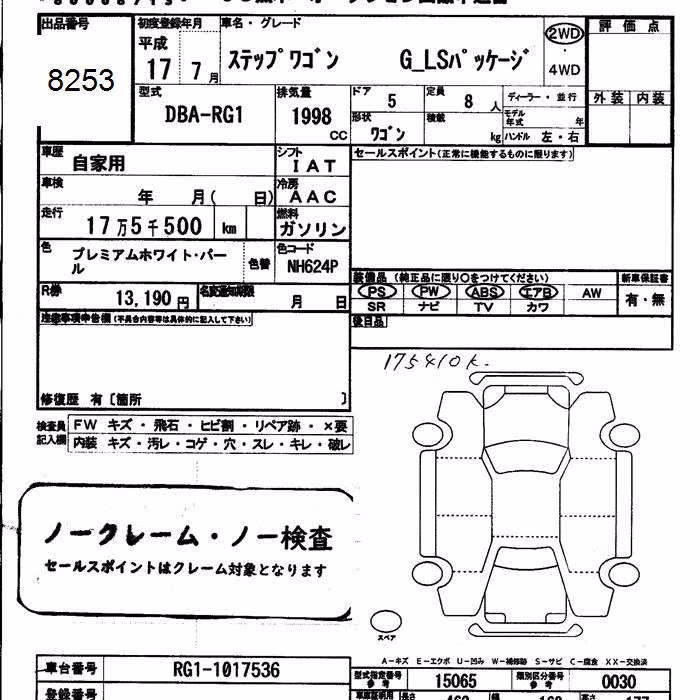 出品番号 初度登録年月 車名・グレード 評価点
8253 平成 17 7月 ステップワゴン G_LSパッケージ 2WD
4WD
外装 内装
型式 排気量 ドア 定員 ディーラー・並行
DBA-RG1 1998 cc 5 8 人 モデル年式 年
形状 積載
ワゴン kg ハンドル 左・右
車歴 自家用 シフト IAT セールスポイント(正常に機能するものに限ります)
車検 年 月( 日) 冷房 AAC
走行 17万5千500 km 燃料 ガソリン
色 プレミアムホワイト・パール 色替 色コード NH624P
装備品 (純正品に限り○をつけてください) 新車保証書
R券 13,190円 名変通知期限 月 日
PS PW ABS エアB AW 有・無
SR ナビ TV カワ
注意事項申告欄(不具合内容等は具体的に記入して下さい) 後日品
175410k.
修復歴 有〔箇所 〕
検査員記入欄 FW キズ・飛石・ヒビ割・リペア跡・×要
内装 キズ・汚レ・コゲ・穴・スレ・キレ・破レ
ノークレーム・ノー検査
セールスポイントはクレーム対象となります
スペア
A-キズ E-エクボ U-凹み W-補修跡 S-サビ C-腐食 XX-交換済
車台番号 RG1-1017536 型式指定番号参考 15065 類別区分番号参考 0030
登録番号